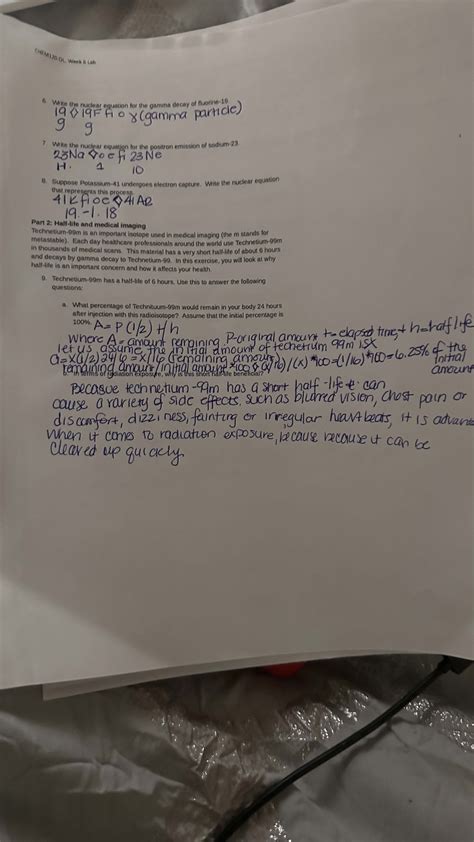 CHEM120 OL, Week 6 Lab
6. Write the nuclear equation for the gamma decay of fluorine-19.
19 ◊ 19F fi o γ (gamma particle)
9 9
7. Write the nuclear equation for the positron emission of sodium-23.
23Na ◊ o e fi 23 Ne
11. 1 10
8. Suppose Potassium-41 undergoes electron capture. Write the nuclear equation
that represents this process.
41K fi o e ◊ 41AR
19. -1. 18
Part 2: Half-life and medical imaging
Technetium-99m is an important isotope used in medical imaging (the m stands for
metastable). Each day healthcare professionals around the world use Technetium-99m
in thousands of medical scans. This material has a very short half-life of about 6 hours
and decays by gamma decay to Technetium-99. In this exercise, you will look at why
half-life is an important concern and how it affects your health.
9. Technetium-99m has a half-life of 6 hours. Use this to answer the following
questions:
a. What percentage of Technituum-99m would remain in your body 24 hours
after injection with this radioisotope? Assume that the initial percentage is
100%. A = P (1/2) t/h
where A = amount remaining, P=original amount t= elapsed time, + h=half life
let us assume the initial amount of techetium 99m is X
a = x(1/2)24/6 = x/16 (remaining amount)
remaining amount/initial amount*100 (x/16)/(x) *100=(1/16)*100=6.25% of the initial amount
In terms of radiation exposure, why is this short half-life beneficial?
Becasue technetium-99m has a short half-life + can
cause a variety of side effects, such as blurred vision, chest pain or
discomfort, dizziness, fainting or irregular heartbeats, it is
when it comes to radiation exposure, because because it can be
cleared up quickly.